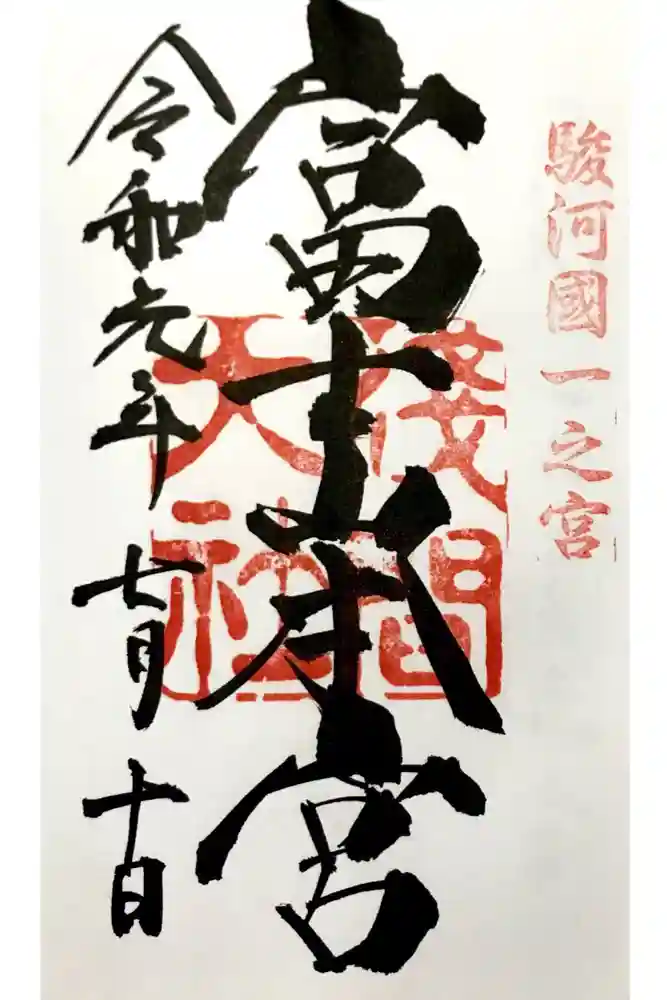 駿河國一之宮
富士本宮
淺間大社
令和元年 七月 十日